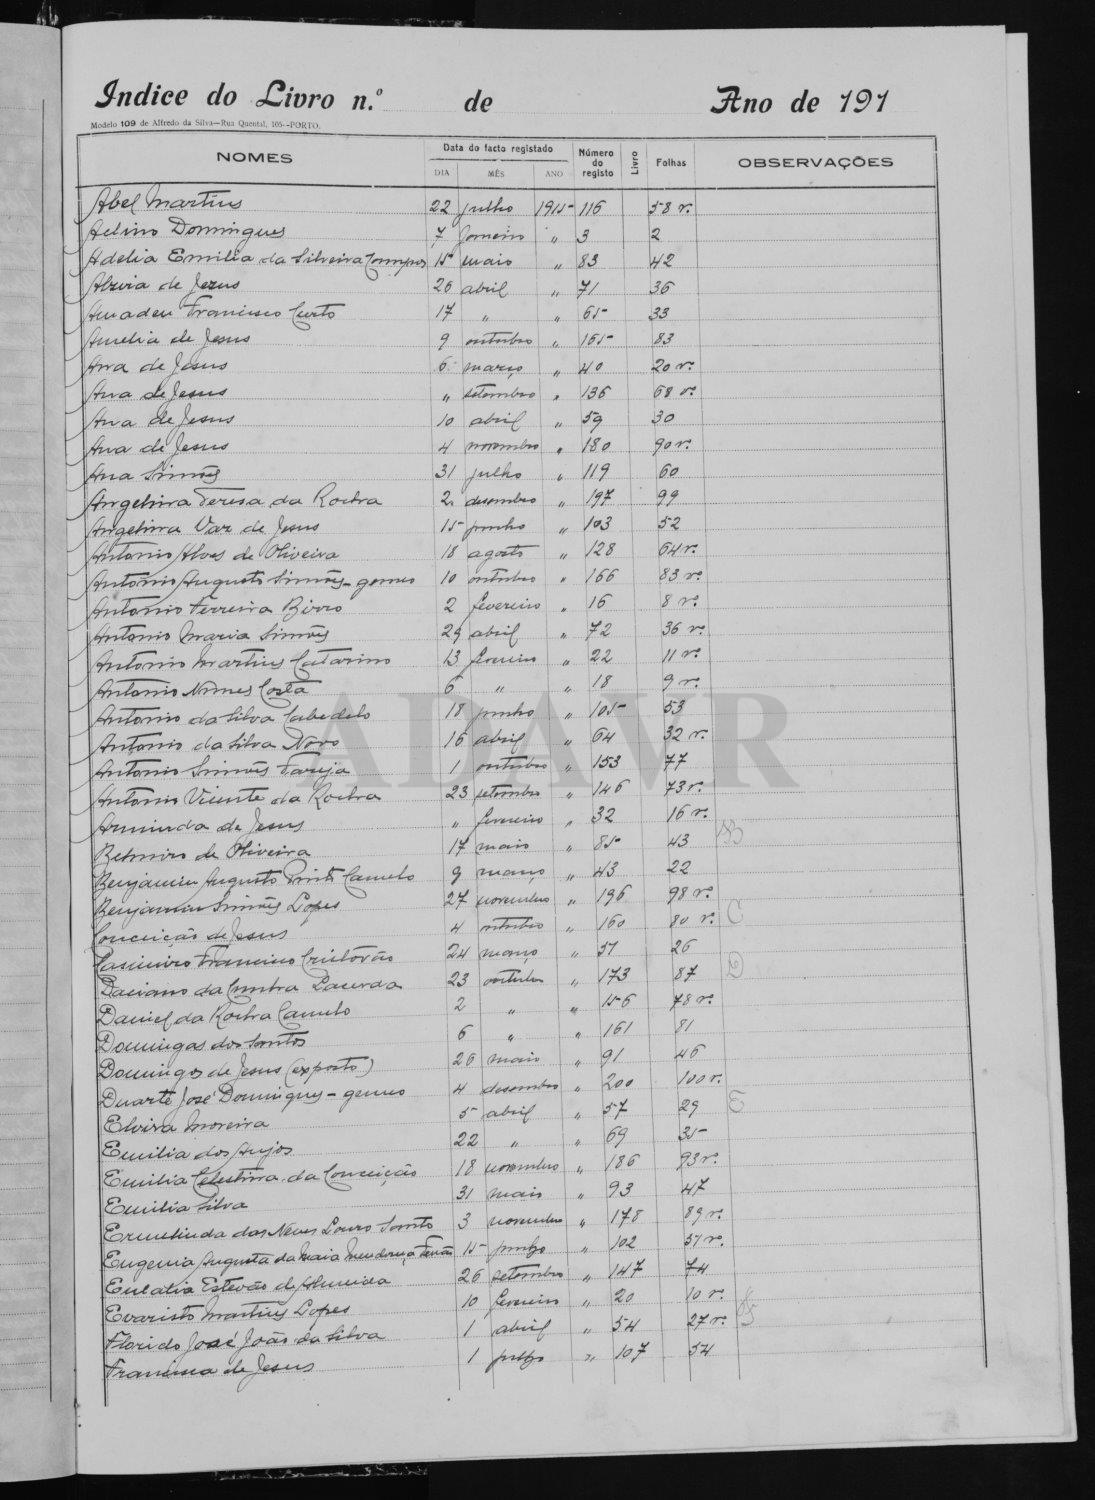 Indice do Livro n.º de Ano de 191
Modelo 109 de Alfredo da Silva—Rua Quental, 105--PORTO.
NOMES Data do facto registado Número do registo Livro Folhas OBSERVAÇÕES
DIA MÊS ANO
Abel Martins 22 julho 1915 116 58 v.
Aelino Domingues 7 Janeiro " 3 2
Adelia Emilia da Silveira Campos 15 maio " 83 42
Alzira de Jezus 26 abril " 71 36
Amadeu Francisco Curto 17 " " 65 33
Amelia de Jesus 9 outubro " 165 83
Ana de Jesus 6 março " 40 20 v.
Ana de Jesus " setembro " 136 68 v.
Ana de Jesus 10 abril " 59 30
Ana de Jesus 4 novembro " 180 90 v.
Ana Simões 31 julho " 119 60
Angelina Teresa da Rocha 2 desembro " 197 99
Angelina Vaz de Jesus 15 junho " 103 52
Antonio Alves de Oliveira 18 agosto " 128 64 v.
Antonio Augusto Simões - gemeo 10 outubro " 166 83 v.
Antonio Ferreira Birro 2 fevereiro " 16 8 v.
Antonio Maria Simões 29 abril " 72 36 v.
Antonio Martins Catarino 13 fevereiro " 22 11 v.
Antonio Nunes Costa 6 " " 18 9 v.
Antonio da Silva Cabedelo 18 junho " 105 53
Antonio da Silva Novo 16 abril " 64 32 v.
Antonio Simões Tareja 1 outubro " 153 77
Antonio Vicente da Rocha 23 setembro " 146 73 v.
Arminda de Jesus " fevereiro " 32 16 v.
Belmiro de Oliveira 17 maio " 85 43 B
Benjamin Augusto Camelo 9 março " 43 22
Benjamin Simões Lopes 27 novembro " 196 98 v.
Conceição de Jesus 4 outubro " 160 80 v. C
Casimiro Francisco Cristovão 24 março " 51 26
Daciano da Cunha Lacerda 23 outubro " 173 87 D
Daniel da Rocha Camelo 2 " " 156 78 v.
Domingas dos Santos 6 " " 161 81
Domingos de Jesus (exposto) 26 maio " 91 46
Duarte José Domingues - gemeo 4 desembro " 200 100 v.
Elvira Moreira 5 abril " 57 29 E
Emilia dos Anjos 22 " " 69 35
Emilia Celestina da Conceição 18 novembro " 186 93 v.
Emilia Silva 31 maio " 93 47
Ermelinda das Neves Louro Santo 3 novembro " 178 89 v.
Eugenia Augusta da Maia Mendonça 15 junho " 102 51 v.
Eulalia Estevão de Almeida 26 setembro " 147 74
Evaristo Martins Lopes 10 fevereiro " 20 10 v.
Florido José João da Silva 1 abril " 54 27 v. F
Francisca de Jesus 1 julho " 107 54
ADAVR